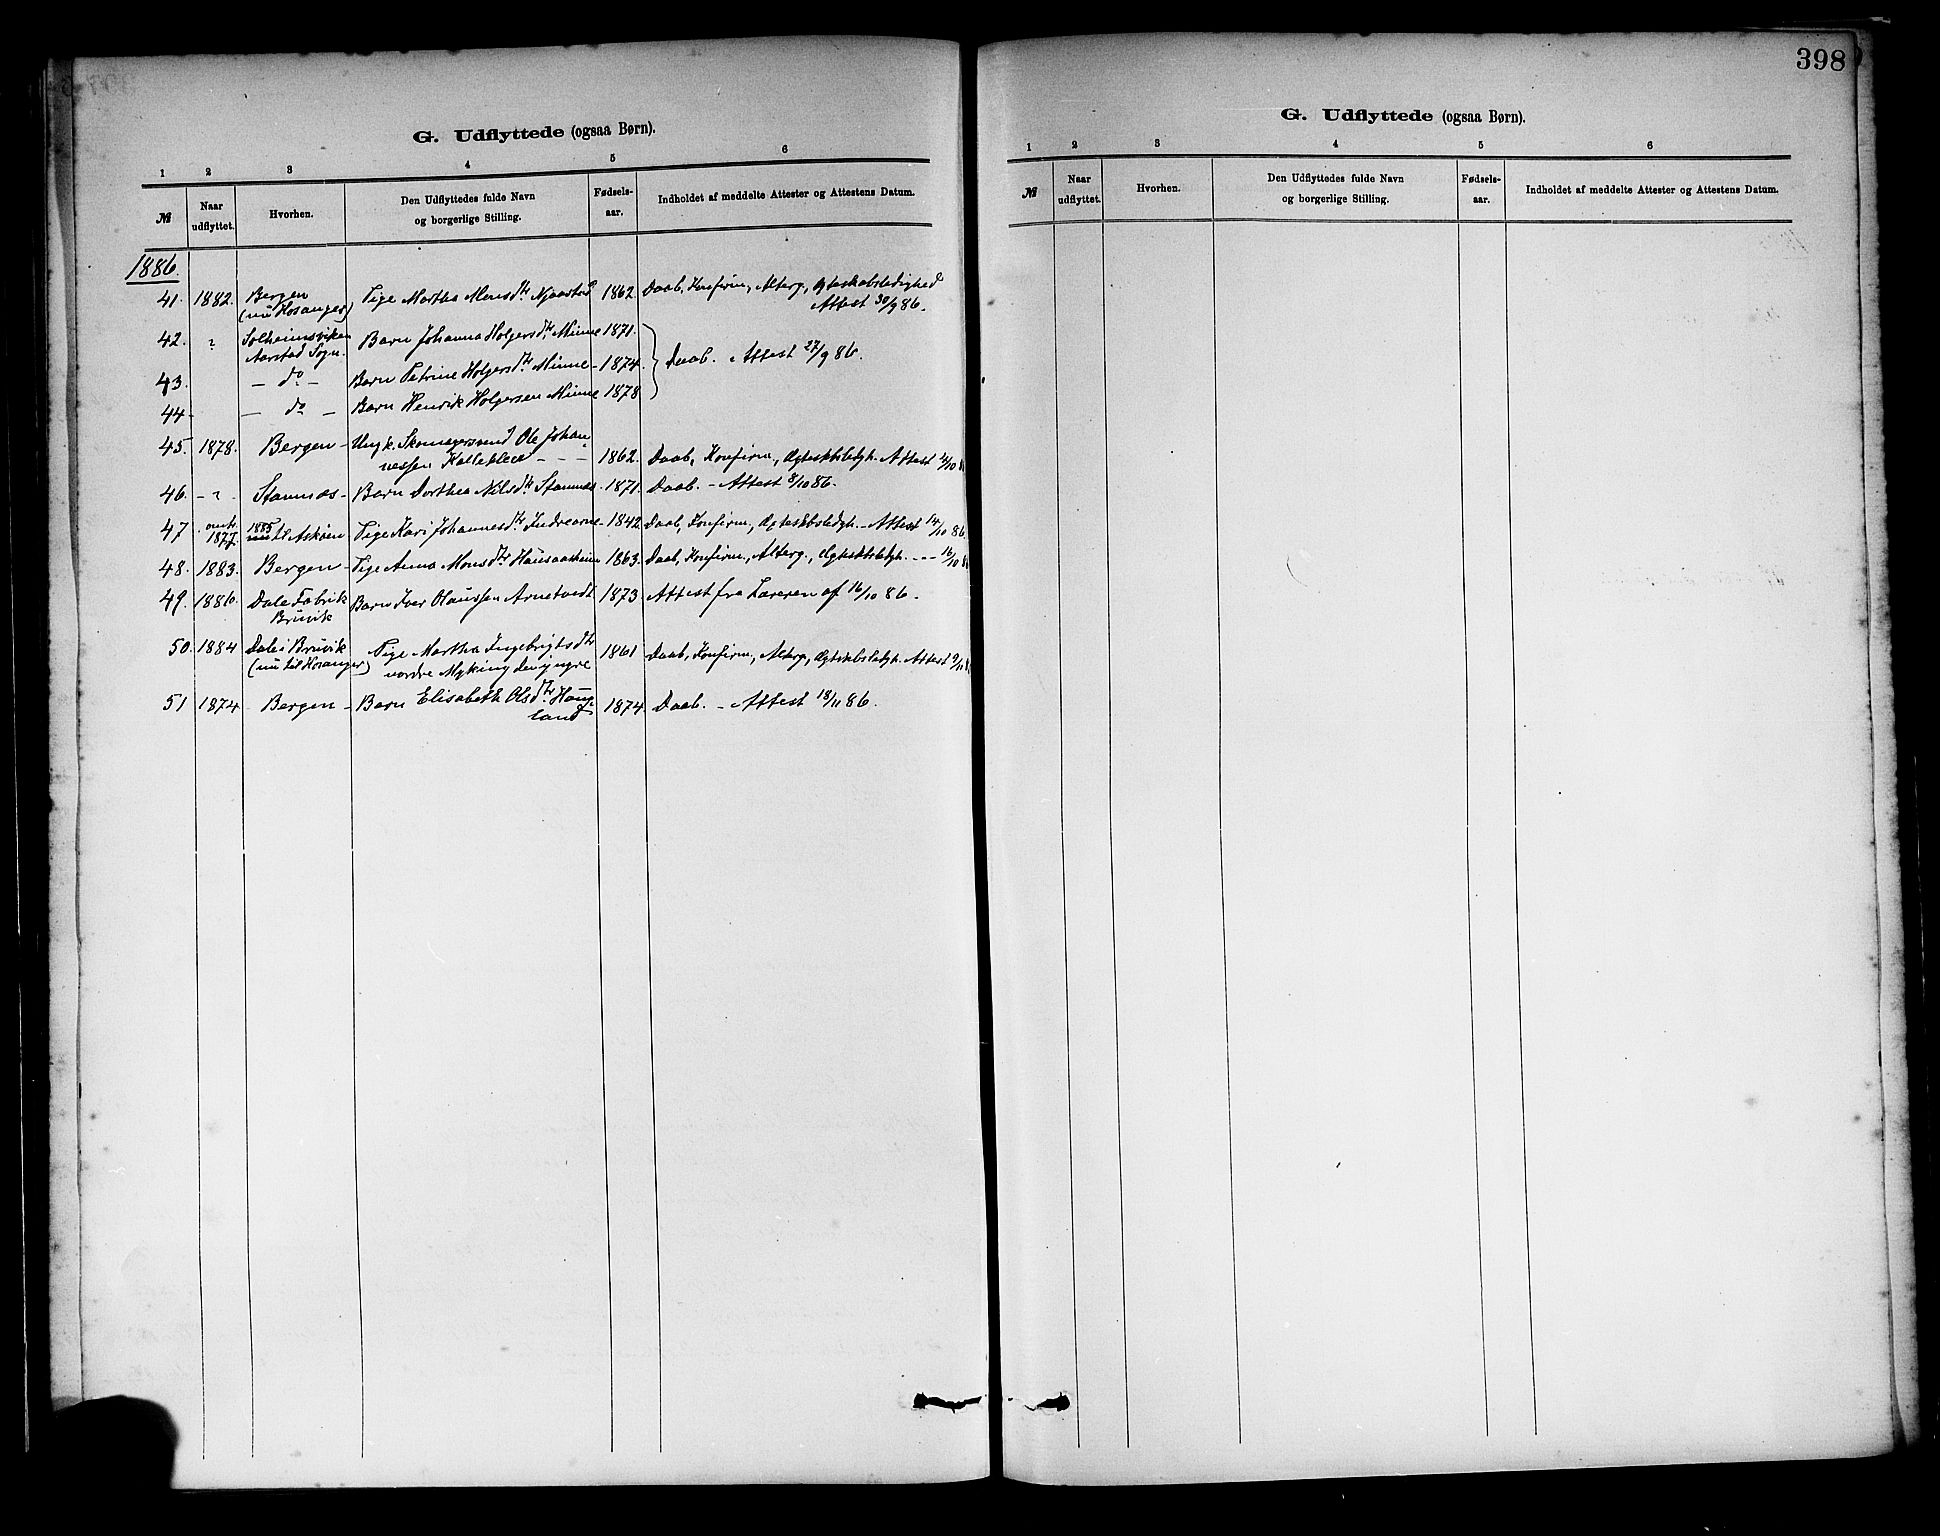 G. Udflyttede (ogsaa Børn).
1 2 3 4 5 6
№ Naar udflyttet. Hvorhen. Den Udflyttedes fulde Navn og borgerlige Stilling. Fødsels-aar. Indholdet af meddelte Attester og Attestens Datum.
1886.
41. 1882. Bergen (nu Hosanger) Pige Martha Monsdtr Njaastad 1862. Daab, Konfirm, Alterg, Ægteskabsledighed Attest 30/9 86.
42. ? Solheimsviken Aarstad Sogn. Barn Johanna Holgersdtr Minne 1871.
43. – do – Barn Petrine Holgersdtr Minne – 1874. Daab. Attest 27/9 86.
44. – do – Barn Henrik Holgersen Minne 1878
45. 1878. Bergen – Ungk. Skomagersvend Ole Johannessen Kalleklev – – – 1862. Daab, Konfirm, Ægteskbsledgh. Attest /10
46. – ? Stamnæs – Barn Dorthea Nilsdtr Stamnæs. 1871. Daab. – Attest 8/10 86.
47. omtr. 1877. 1885 nu til Askøen Pige Kari Johannesdtr Indrearne – 1842. Daab, Konfirm, Ægteskbsledgh. – Attest 14/10 86.
48. 1883. Bergen – Pige Anna Monsdtr 1863. Daab, Konfirm, Alterg., Ægteskbsledgh. – – – 16/10
49. 1886. Dale Fabrik Bruvik Barn Iver Olaussen Arnetvedt 1873 Attest fra Læreren af 16/10 86.
50. 1884 Dale i Bruvik (nu til Hosanger) Pige Martha Ingebrigtsdtr nordre Myking den yngre 1861 Daab, Konfirm, Alterg, Ægteskbsledgh. Attest 9/11
51 1874 – Bergen – Barn Elisabeth Olsdtr Haugland 1874 Daab. – Attest 18/11 86.
398
G. Udflyttede (ogsaa Børn).
1 2 3 4 5 6
№ Naar udflyttet. Hvorhen. Den Udflyttedes fulde Navn og borgerlige Stilling. Fødsels-aar. Indholdet af meddelte Attester og Attestens Datum.